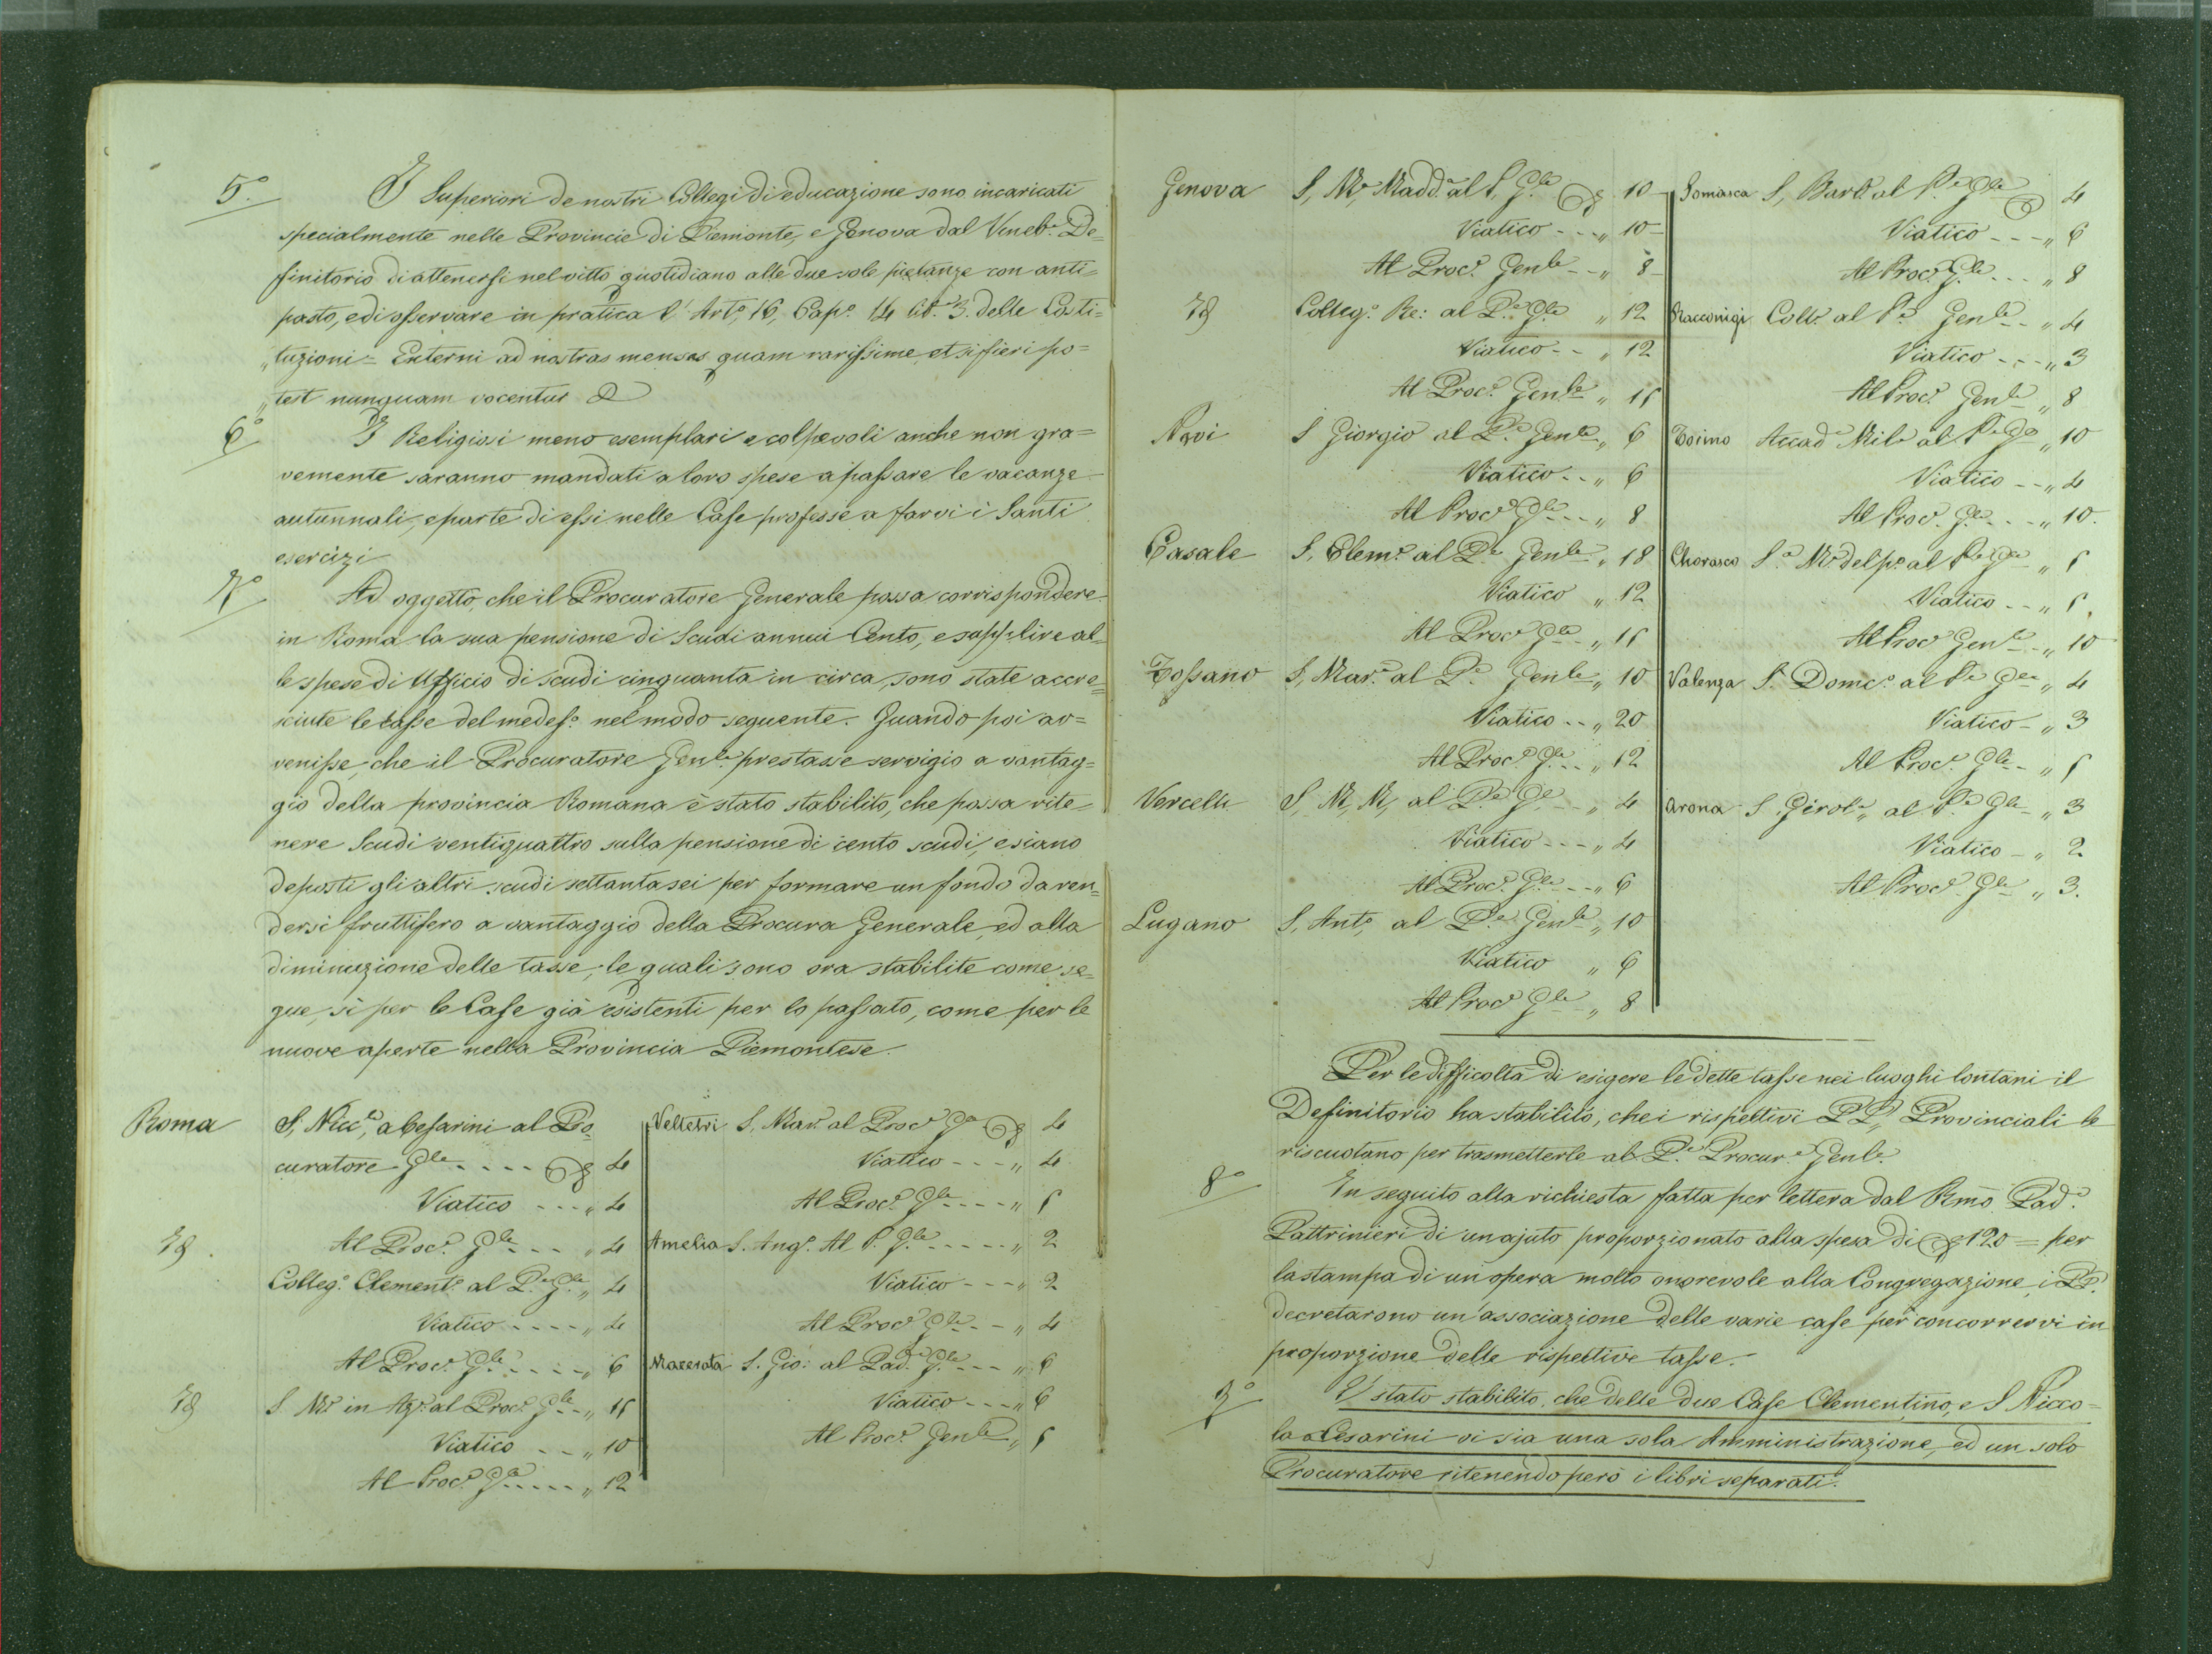 5.° I Superiori de nostri Collegi di educazione sono incaricati
specialmente nelle Provincie di Piemonte, e Genova dal Veneb.e De=
finitorio di attenersi nel vitto quotidiano alle due sole pietanze con anti=
pasto, e di osservare in pratica l' Art.° 16, Cap.° 14 lib. 3. delle Costi=
„tuzioni = Externi ad nostras mensas quam rarissime, et si fieri po=
„test nunquam vocentur &
6° I Religiosi meno esemplari e colpevoli anche non gra=
vemente saranno mandati a loro spese a passare le vacanze
autunnali, e parte di essi nelle Case professe a farvi i Santi
esercizi
7° Ad oggetto, che il Procuratore Generale possa corrispondere
in Roma la sua pensione di Scudi annui Cento, e supplire al=
le spese di Ufficio di scudi cinquanta in circa, sono state accre=
sciute le tasse del medes.° nel modo seguente. Quando poi av=
venisse, che il Procuratore Gen.le prestasse servigio a vantag=
gio della provincia Romana è stato stabilito, che possa rite=
nere Scudi ventiquattro sulla pensione di cento scudi, e siano
deposti gli altri scudi settantasei per formare un fondo da ren=
dersi fruttifero a vantaggio della Procura Generale, ed alla
diminuzione delle tasse, le quali sono ora stabilite come se=
gue, sì per le Case già esistenti per lo passato, come per le
nuove aperte nella Provincia Piemontese.
Roma S. Nicc.a, a Cesarini al Pro=
curatore G.le .... 4
Viatico ... „ 4
Al Proc.e G.le ... „ 4
Colleg.° Clement.° al P.e G.le „ 4
Viatico .... „ 4
Al Proc.e G.le .... „ 6
S. M.a in Aq.° al Proc.e G.le .. „ 15
Viatico .. „ 10
Al Proc.e G.le .... „ 12
Velletri S. Mar. al Proc.e G.le 4
Viatico ... „ 4
Al Proc.e G.le .... „ 5
Amelia S. Ang.° Al P. G.le ..... „ 2
Viatico ... „ 2
Al Proc.e G.le .. „ 4
Macerata S. Gio: al Pad.e G.le ... „ 6
Viatico ... „ 6
Al Proc.e Gen.le „ 5
Genova S. M.a Madd.a al P. G.le 10
Viatico ... „ 10
Al Proc.e Gen.le .. „ 8
Colleg.° Re: al P.e G.le „ 12
Viatico .. „ 12
Al Proc.e Gen.le „ 15
Novi S Giorgio al P.e Gen.le „ 6
Viatico .. „ 6
Al Proc.e G.le ... „ 8
Casale S. Clem.e al P.e Gen.le „ 18
Viatico „ 12
Al Proc.e G.le .. „ 15
Fossano S. Mar.a al P.e Gen.le „ 10
Viatico .. „ 20
Al Proc.e G.le .. „ 12
Vercelli S. M. M. al P.e G.le .. „ 4
Viatico ... „ 4
Al Proc.e G.le .. „ 6
Lugano S. Ant.° al P.e Gen.le „ 10
Viatico „ 6
Al Proc.e G.le „ 8
Somasca S. Bart.° al P.e G.le 4
Viatico ... „ 6
Al Proc.e G.le ... „ 8
Racconigi Coll.° al P.e Gen.le .. „ 4
Viatico ... „ 3
Al Proc.e Gen.le „ 8
Torino Accad.a Mil.e al P.e G.le „ 10
Viatico .. „ 4
Al Proc.e G.le ... „ 10.
Cherasco S.a M.a del p.° al P.e G.le „ 5
Viatico .. „ 5.
Al Proc.e Gen.le .. „ 10
Valenza S. Domc.° al P.e G.le „ 4
Viatico . „ 3
Al Proc.e G.le .. „ 5
Arona S. Girol.° al P.e G.le . „ 3
Viatico . „ 2
Al Proc.e G.le „ 3.
Per le difficoltà di esigere le dette tasse nei luoghi lontani il
Definitorio ha stabilito, che i rispettivi PP. Provinciali le
riscuotano per trasmetterle al P.e Procur.e Gen.le
8° In seguito alla richiesta fatta per lettera dal Rmo Pad.e
Pattrinieri di un ajuto proporzionato alla spesa di 120 = per
la stampa di un' opera molto onorevole alla Congregazione, i PP.
decretarono un' associazione delle varie case per concorrervi in
proporzione delle rispettive tasse.
9° E' stato stabilito, che delle due Case Clementino, e S Nicco=
la a Cesarini vi sia una sola Amministrazione, ed un solo
Procuratore ritenendo però i libri separati.